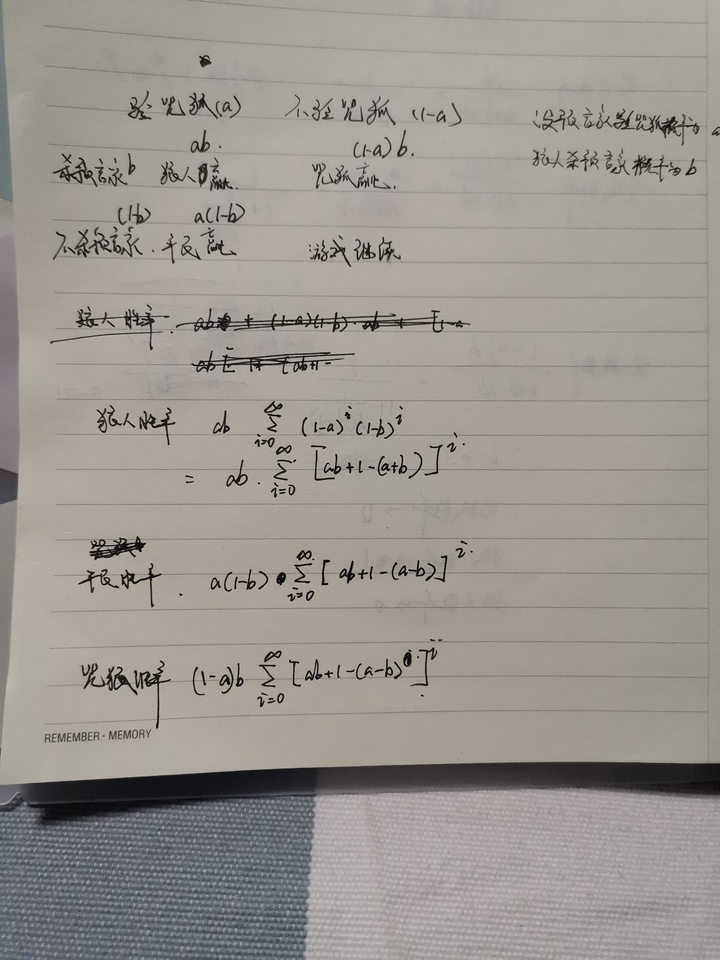 验咒狐(a) 不验咒狐 (1-a) 设预言家验咒狐概率为 a
ab. (1-a)b. 狼人杀预言家概率为b
杀预言家 b 狼人赢. 咒狐赢.
(1-b) a(1-b)
不杀预言家. 平民赢 游戏继续
狼人胜率 ab \sum_{i=0}^{∞} (1-a)^i (1-b)^i
= ab · \sum_{i=0}^{∞} [ab+1-(a+b)]^i.
平民胜率. a(1-b) · \sum_{i=0}^{∞} [ab+1-(a-b)]^i.
咒狐胜率 (1-a)b \sum_{i=0}^{∞} [ab+1-(a-b)]^i
REMEMBER · MEMORY